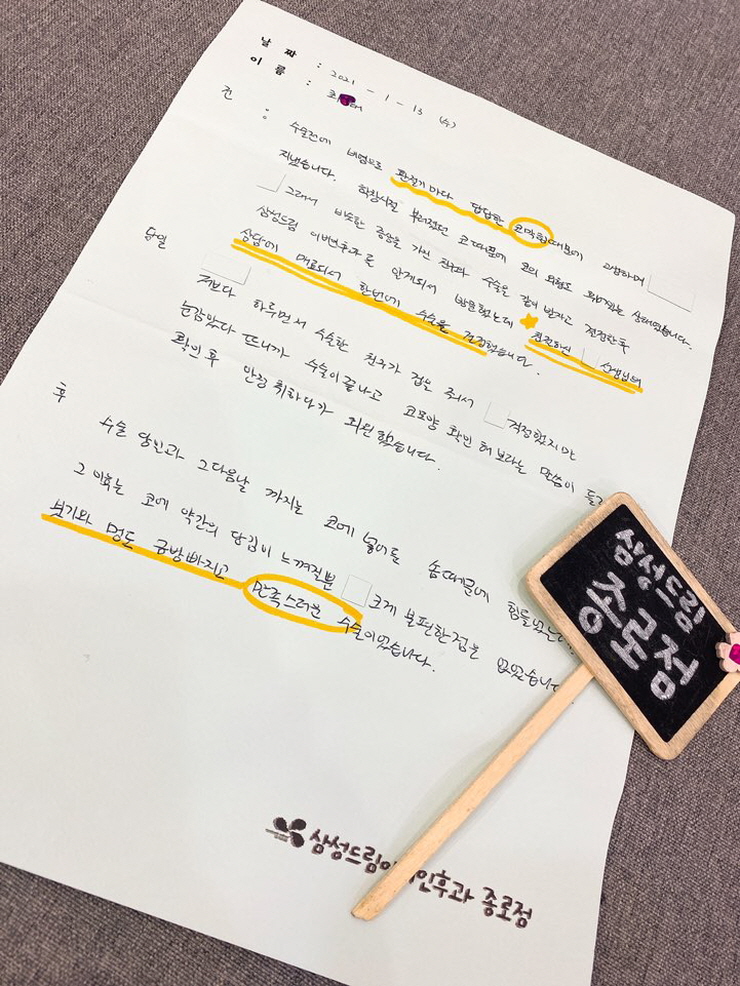 날 짜 : 2021 - 1 - 13 (수)
이 름 : 최
전 : 수술전에 비염으로 환절기 마다 답답한 코막힘때문에 고생하며
지냈습니다. 학창시절 부러졌던 코 때문에 코의 외형도 휘어있는 상태였습니다.
그래서 비슷한 증상을 가진 친구과 수술을 같이 받자고 결정한후
삼성드림 이비인후과를 알게되서 방문했는데 친절하신 선생님의
상담에 매료되서 한번에 수술을 결정했습니다.
당일
저보다 하루먼저 수술한 친구가 겁을 줘서 걱정했지만
눈감았다 뜨니까 수술이 끝나고 코모양 확인 해보라는 말씀이 들
확인후 안정 취하다가 퇴원했습니다.
후
수술 당일과 그다음날 까지는 코에 넣어둔 솜때문에 힘들었는
그 이후는 코에 약간의 당김이 느껴질뿐 크게 불편한점은 없었습니다
붓기와 멍도 금방빠지고 만족스러운 수술이었습니다.
삼성드림
종로점
삼성드림이 인후과 종로점